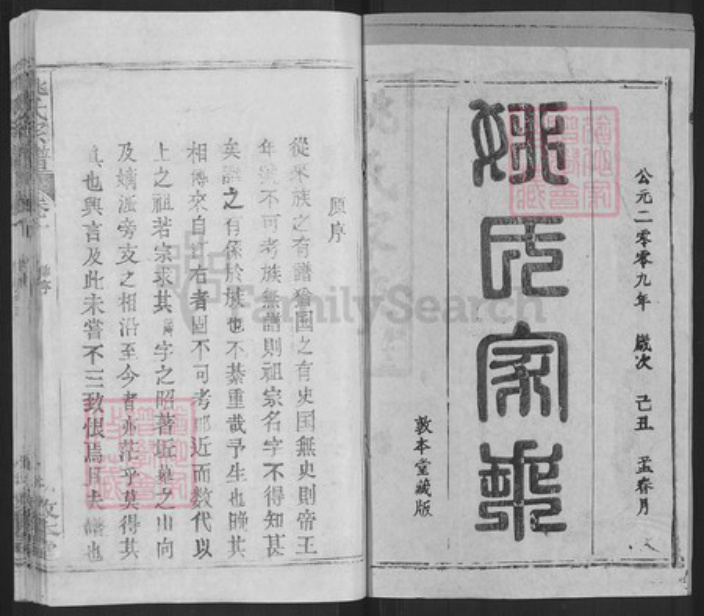 公元二零零九年 歲次 己丑 孟春月
姚氏家乘
敦本堂藏版
原序
從來族之有譜猶国之有史国無史則帝王
年號不可考族無譜則祖宗名字不得知甚
矣譜之有係於族也不綦重哉予生也晚其
相傳來自江右者固不可考即近而数代以
上之祖若宗求其諱字之昭著坵墓之山向
及嫡派旁支之相沿至今者亦茫乎莫得其
真也興言及此未嘗不三致恨焉且夫譜也
姚氏家譜
卷首
FamilySearch